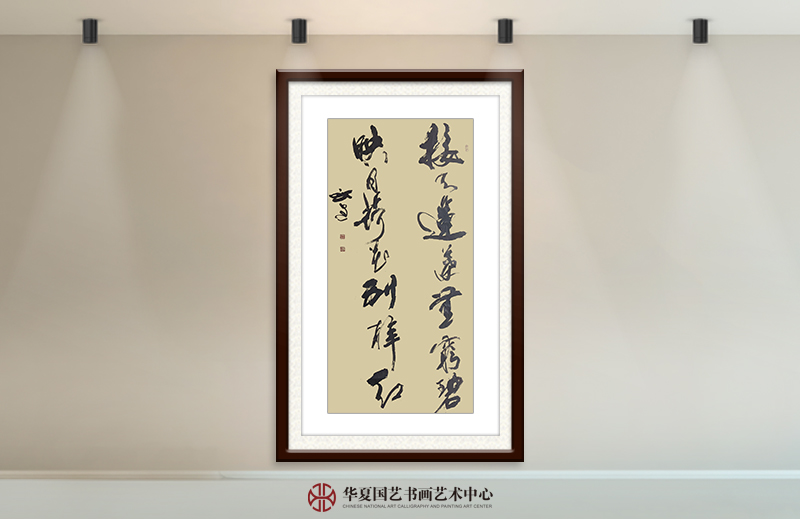 接天蓮葉無窮碧
映日荷花别樣紅
华夏国艺书画艺术中心
CHINESE NATIONAL ART CALLIGRAPHY AND PAINTING ART CENTER